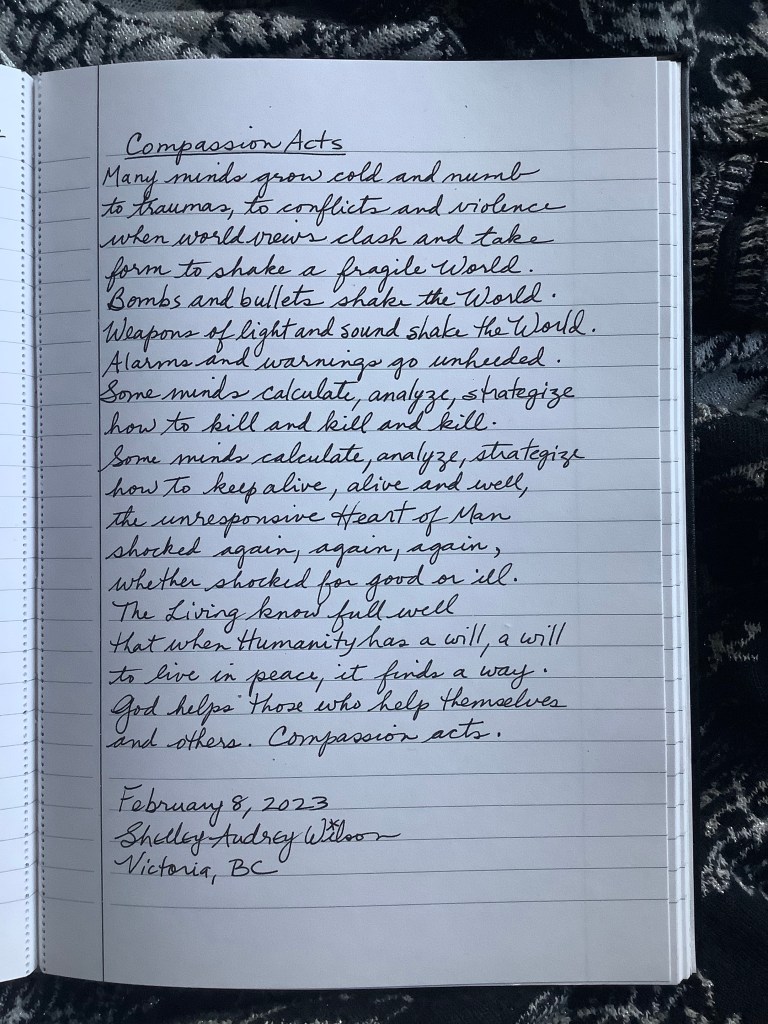 Compassion Acts
Many minds grow cold and numb
to traumas, to conflicts and violence
when world views clash and take
form to shake a fragile World.
Bombs and bullets shake the World.
Weapons of light and sound shake the World.
Alarms and warnings go unheeded.
Some minds calculate, analyze, strategize
how to kill and kill and kill.
Some minds calculate, analyze, strategize
how to keep alive, alive and well,
the unresponsive Heart of Man
shocked again, again, again,
whether shocked for good or ill.
The Living know full well
that when Humanity has a will, a will
to live in peace, it finds a way.
God helps those who help themselves
and others. Compassion acts.
February 8, 2023
Shelley Audrey Wilson
Victoria, BC